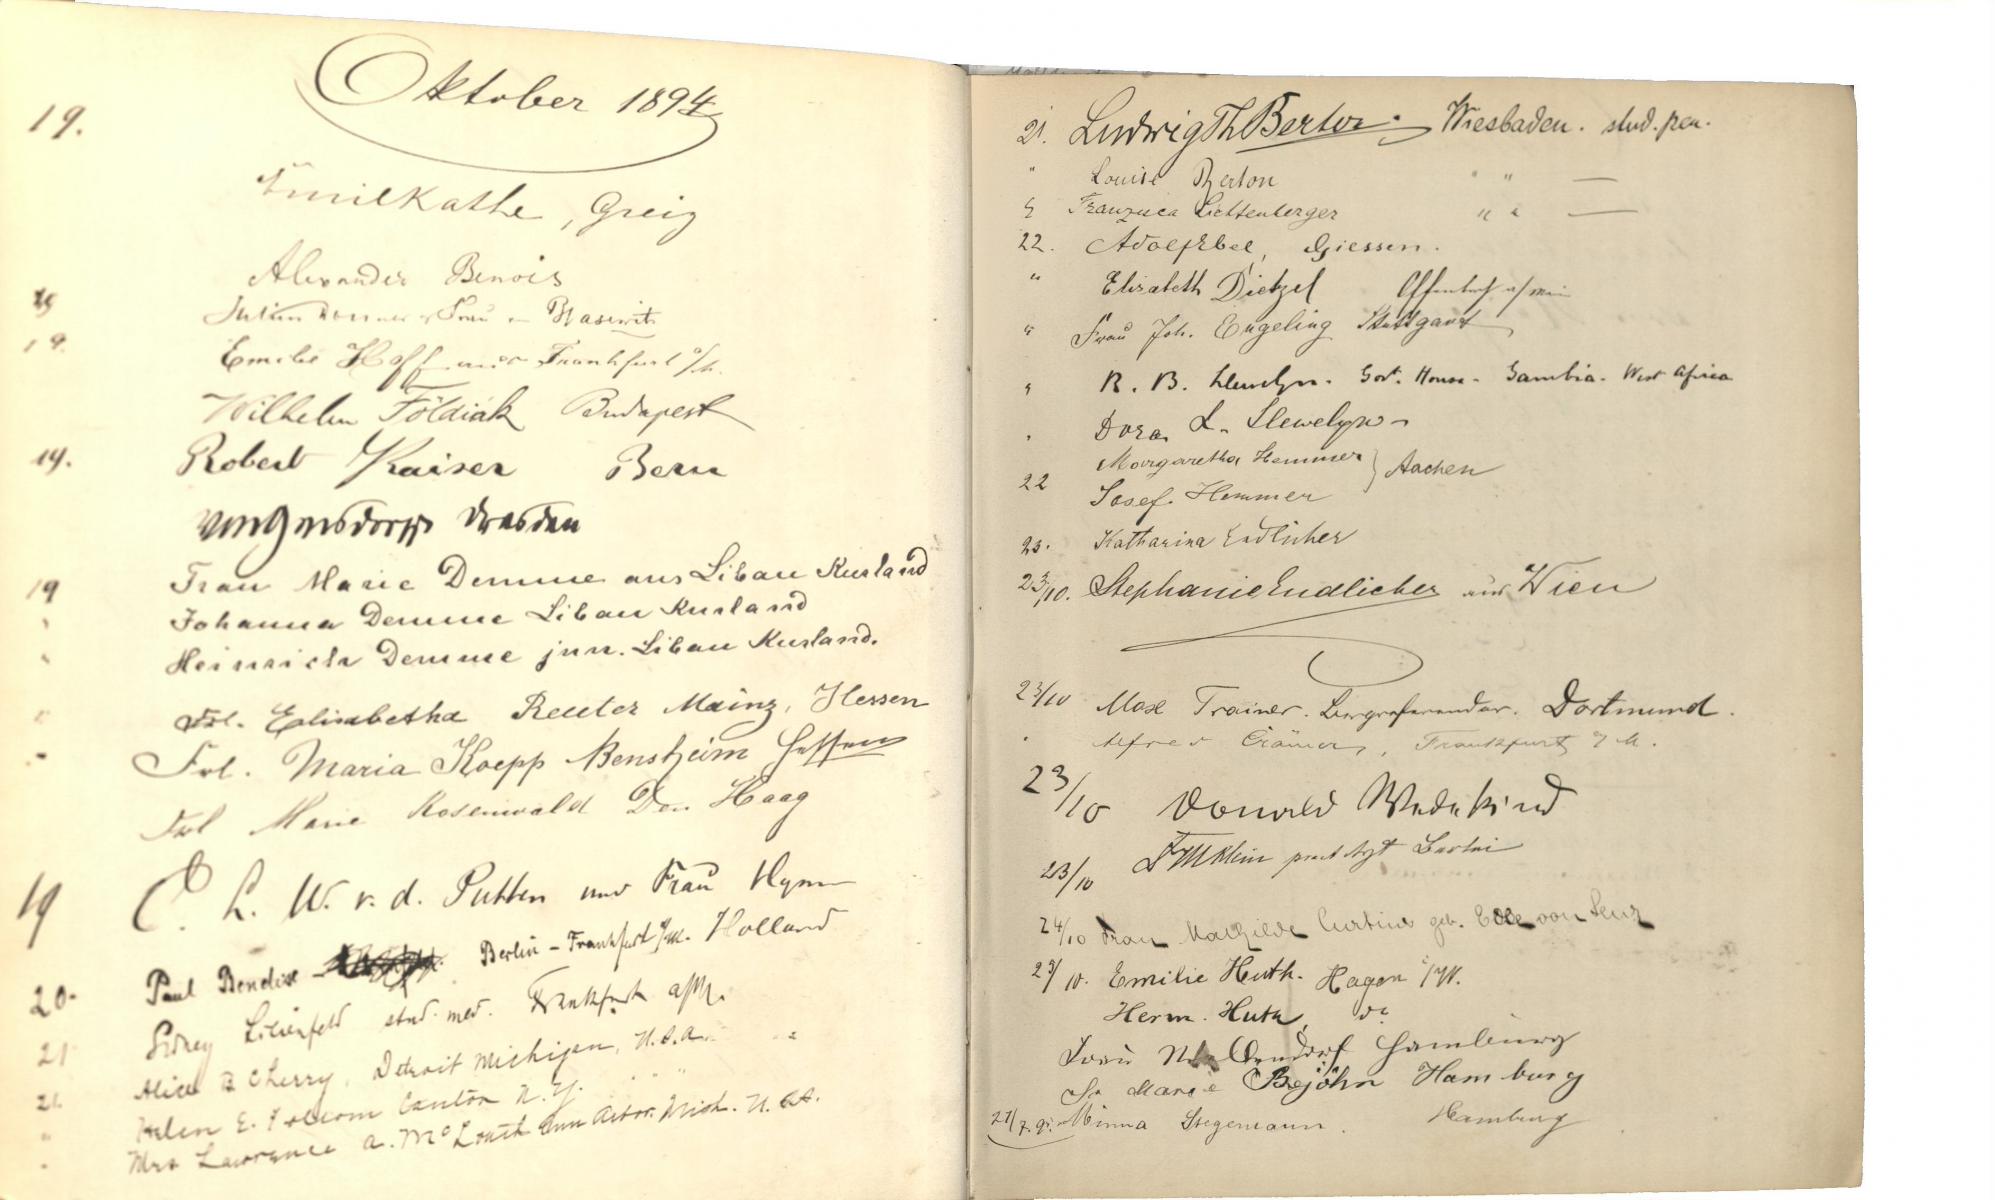 Oktober 1894
19.
Emil Kathe, Greiz
Alexander Benois
19.
Emilie Hoffmann Frankfurt a/M.
Wilhelm Földiák Budapest
19. Robert Kaiser Bern
von Gersdorff Dresden
19 Frau Marie Demme aus Libau Kurland
" Johanna Demme Libau Kurland
" Heinrich Demme jun. Libau Kurland.
" Frl. Elisabetha Reuter Mainz, Hessen
" Frl. Maria Koepp Bensheim Hessen
Frl Marie Rosenwald Den Haag
19 C. L. W. v. d. Putten und Frau
Holland
20. Paul Benedix - Berlin - Frankfurt a/M.
21 Sidney Lilienfeld stud. med. Frankfurt a/M.
21. Alice B Cherry, Detroit Michigan, U.S.A.
" Helen E. Folsom Canton N.Y. " "
" Mrs Lawrence A. McLouth Ann Arbor. Mich. U.S.A.
21. Ludwig Th Berton. Wiesbaden. stud.
" Louise Berton " " —
" Lichtenberger " " —
22. Adolf Ebel, Giessen.
" Elisabeth Dietzel Offenbach a/Main
" Frau Joh. Engeling Stuttgart
" R. B. Llewelyn. Govt. House. Gambia. West Africa
" Dora L. Llewelyn
Margaretha Hemmer } Aachen
22 Josef Hemmer
23. Katharina Endlicher
23/10. Stephanie Endlicher aus Wien
23/10 Max Trainer. Bergreferendar. Dortmund.
" Alfred Crämer, Frankfurt a/M.
23/10 Donald Wedekind
23/10 Klein pract Arzt Berlin
24/10 Frau Mathilde Curtius geb. Edle von
23/10. Emilie Huth. Hagen i/W.
Herm. Huth do
Frau Hamburg
Marie Bejöhn Hamburg
Minna Stegemann. Hamburg